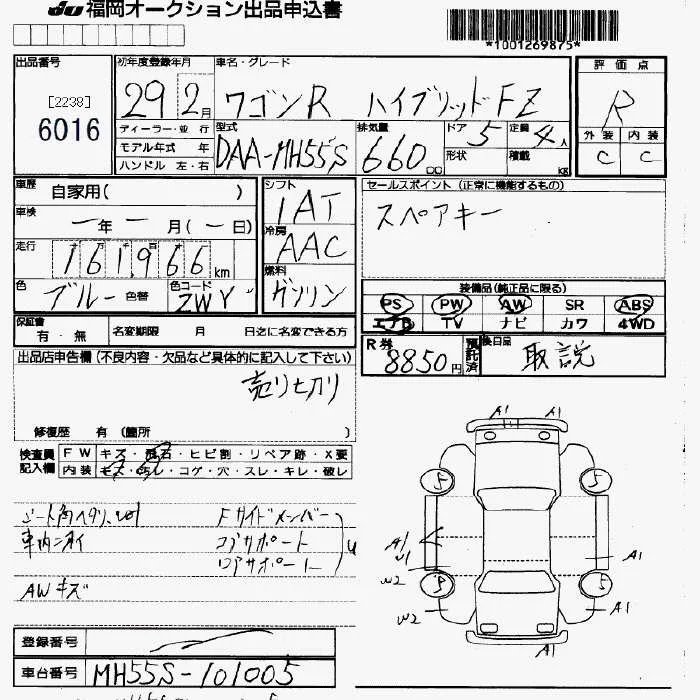 JU 福岡オークション出品申込書
*1001269875*
出品番号
[2238]
6016
初年度登録年月
29 2月
車名・グレード
ワゴンR ハイブリッドFZ
評価点
R
外装 内装
C C
ディーラー・並行
モデル年式 年
ハンドル 左・右
型式
DAA-MH55S
排気量
660 cc
ドア 5
形状
定員 4人
積載 kg
車歴 自家用( )
車検 ー年ー月(ー日)
走行 161,966 km
色 ブルー 色替
色コード ZWY
シフト
IAT
冷房
AAC
燃料
ガソリン
セールスポイント (正常に機能するもの)
スペアキー
装備品(純正品に限る)
PS PW AW SR ABS
エアB TV ナビ カワ 4WD
保証書 有・無
名変期限 月 日迄に名変できる方
R券 8850円 預託済
後日品 取説
出品店申告欄(不良内容・欠品など具体的に記入して下さい)
売り切り
修復歴 有 (箇所 )
検査員記入欄
FW キズ・飛石・ヒビ割・リペア跡・X要
内装 キズ・汚レ・コゲ・穴・スレ・キレ・破レ
Fサイドメンバー
コアサポート
ロアサポート
AWキズ
A1 A1
5 5
A1
U1
A1
W2
5 5
W2 A1
A1
登録番号
車台番号 MH55S-101005